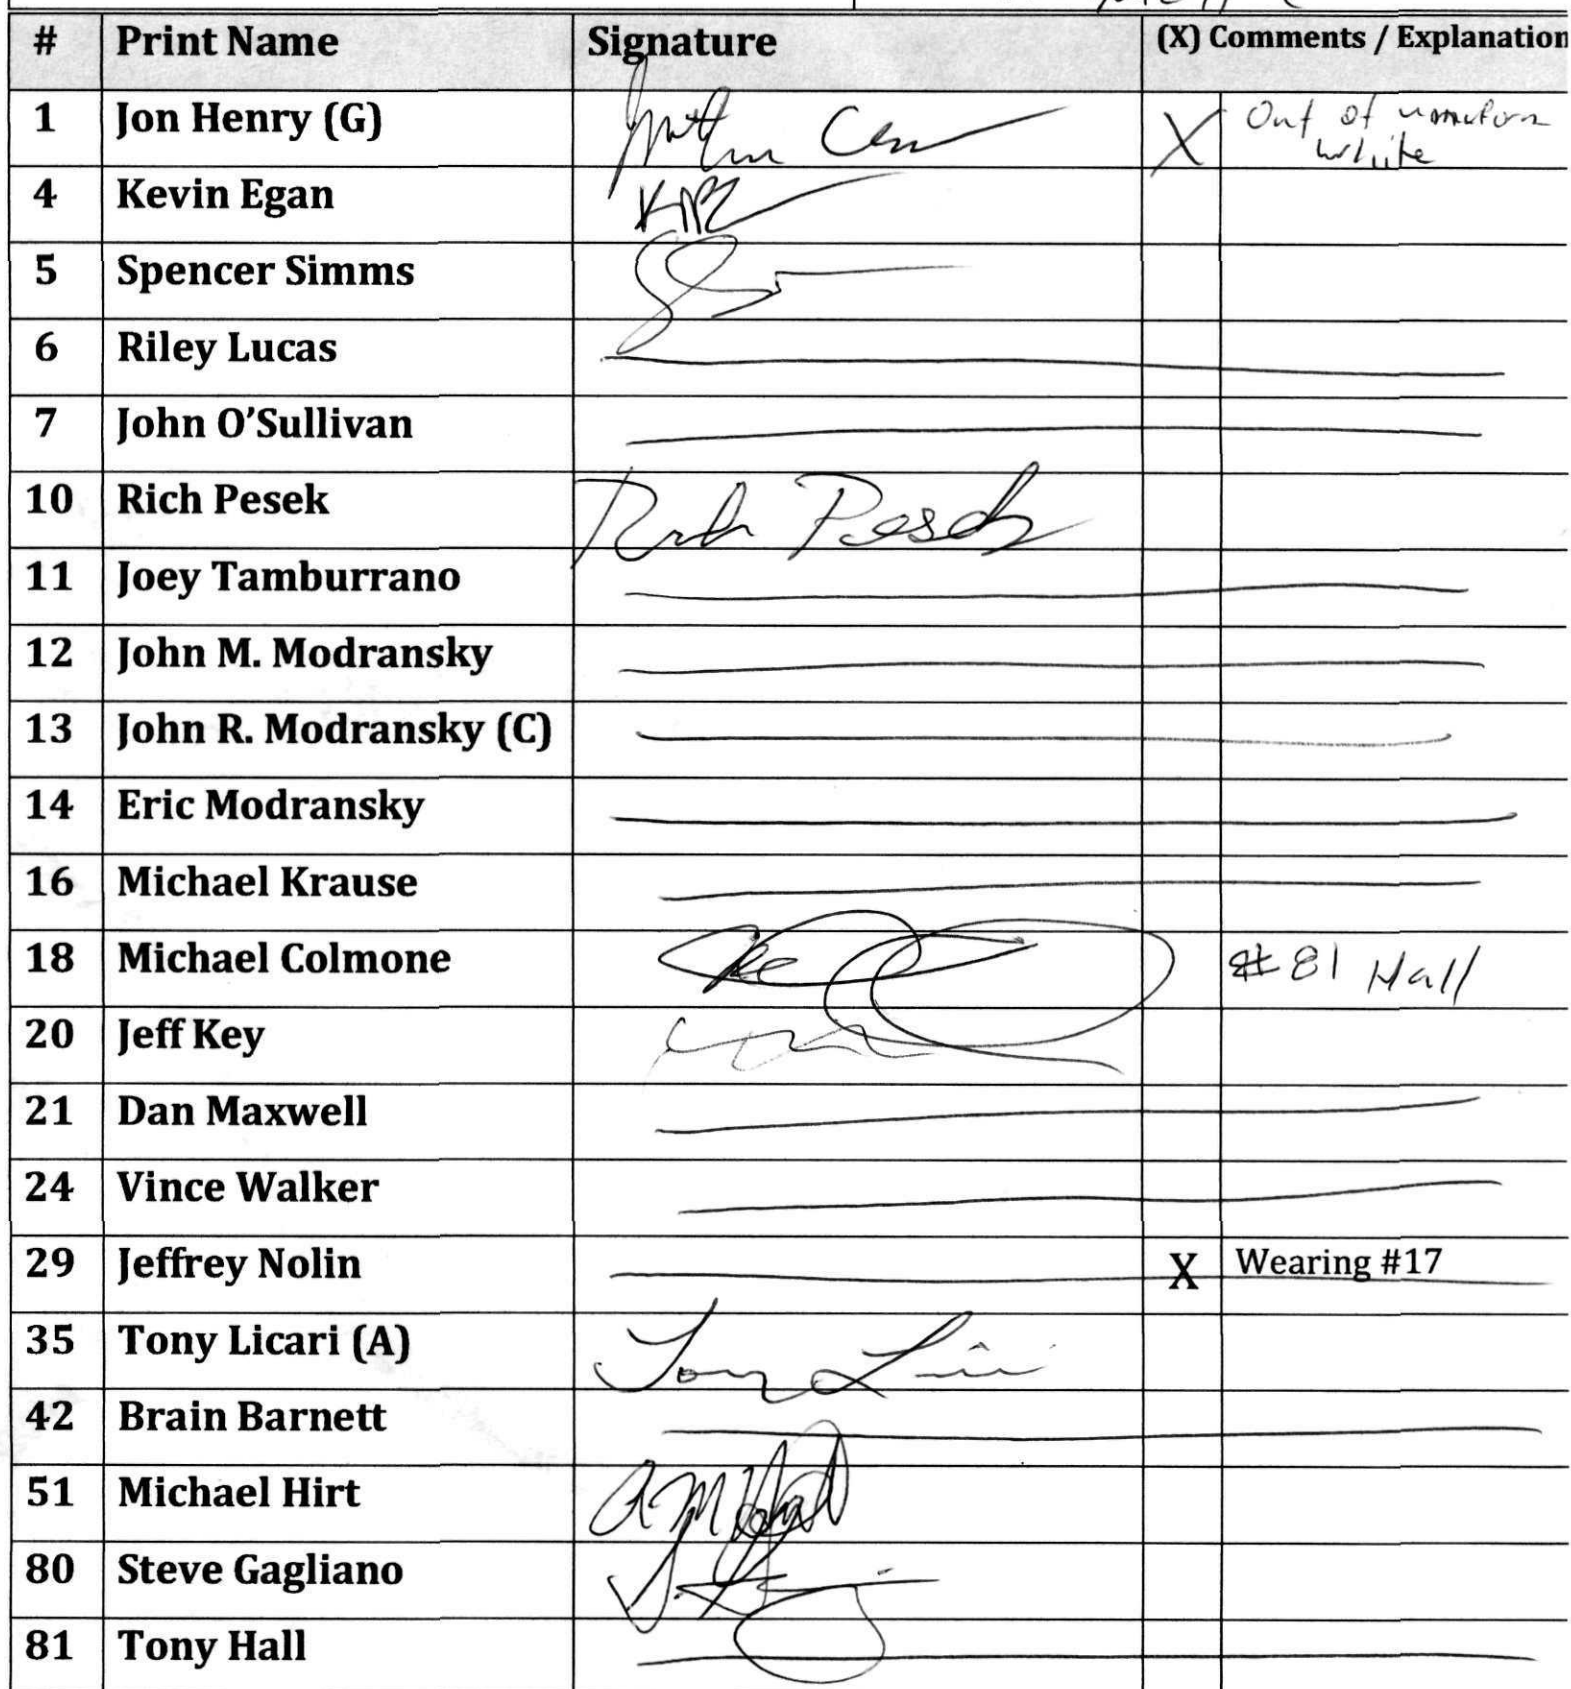 # Print Name Signature (X) Comments / Explanation
1 Jon Henry (G) X Out of
white
4 Kevin Egan
5 Spencer Simms
6 Riley Lucas
7 John O'Sullivan
10 Rich Pesek Rich Pesek
11 Joey Tamburrano
12 John M. Modransky
13 John R. Modransky (C)
14 Eric Modransky
16 Michael Krause
18 Michael Colmone #81 Hall
20 Jeff Key
21 Dan Maxwell
24 Vince Walker
29 Jeffrey Nolin X Wearing #17
35 Tony Licari (A) Tony
42 Brain Barnett
51 Michael Hirt
80 Steve Gagliano
81 Tony Hall